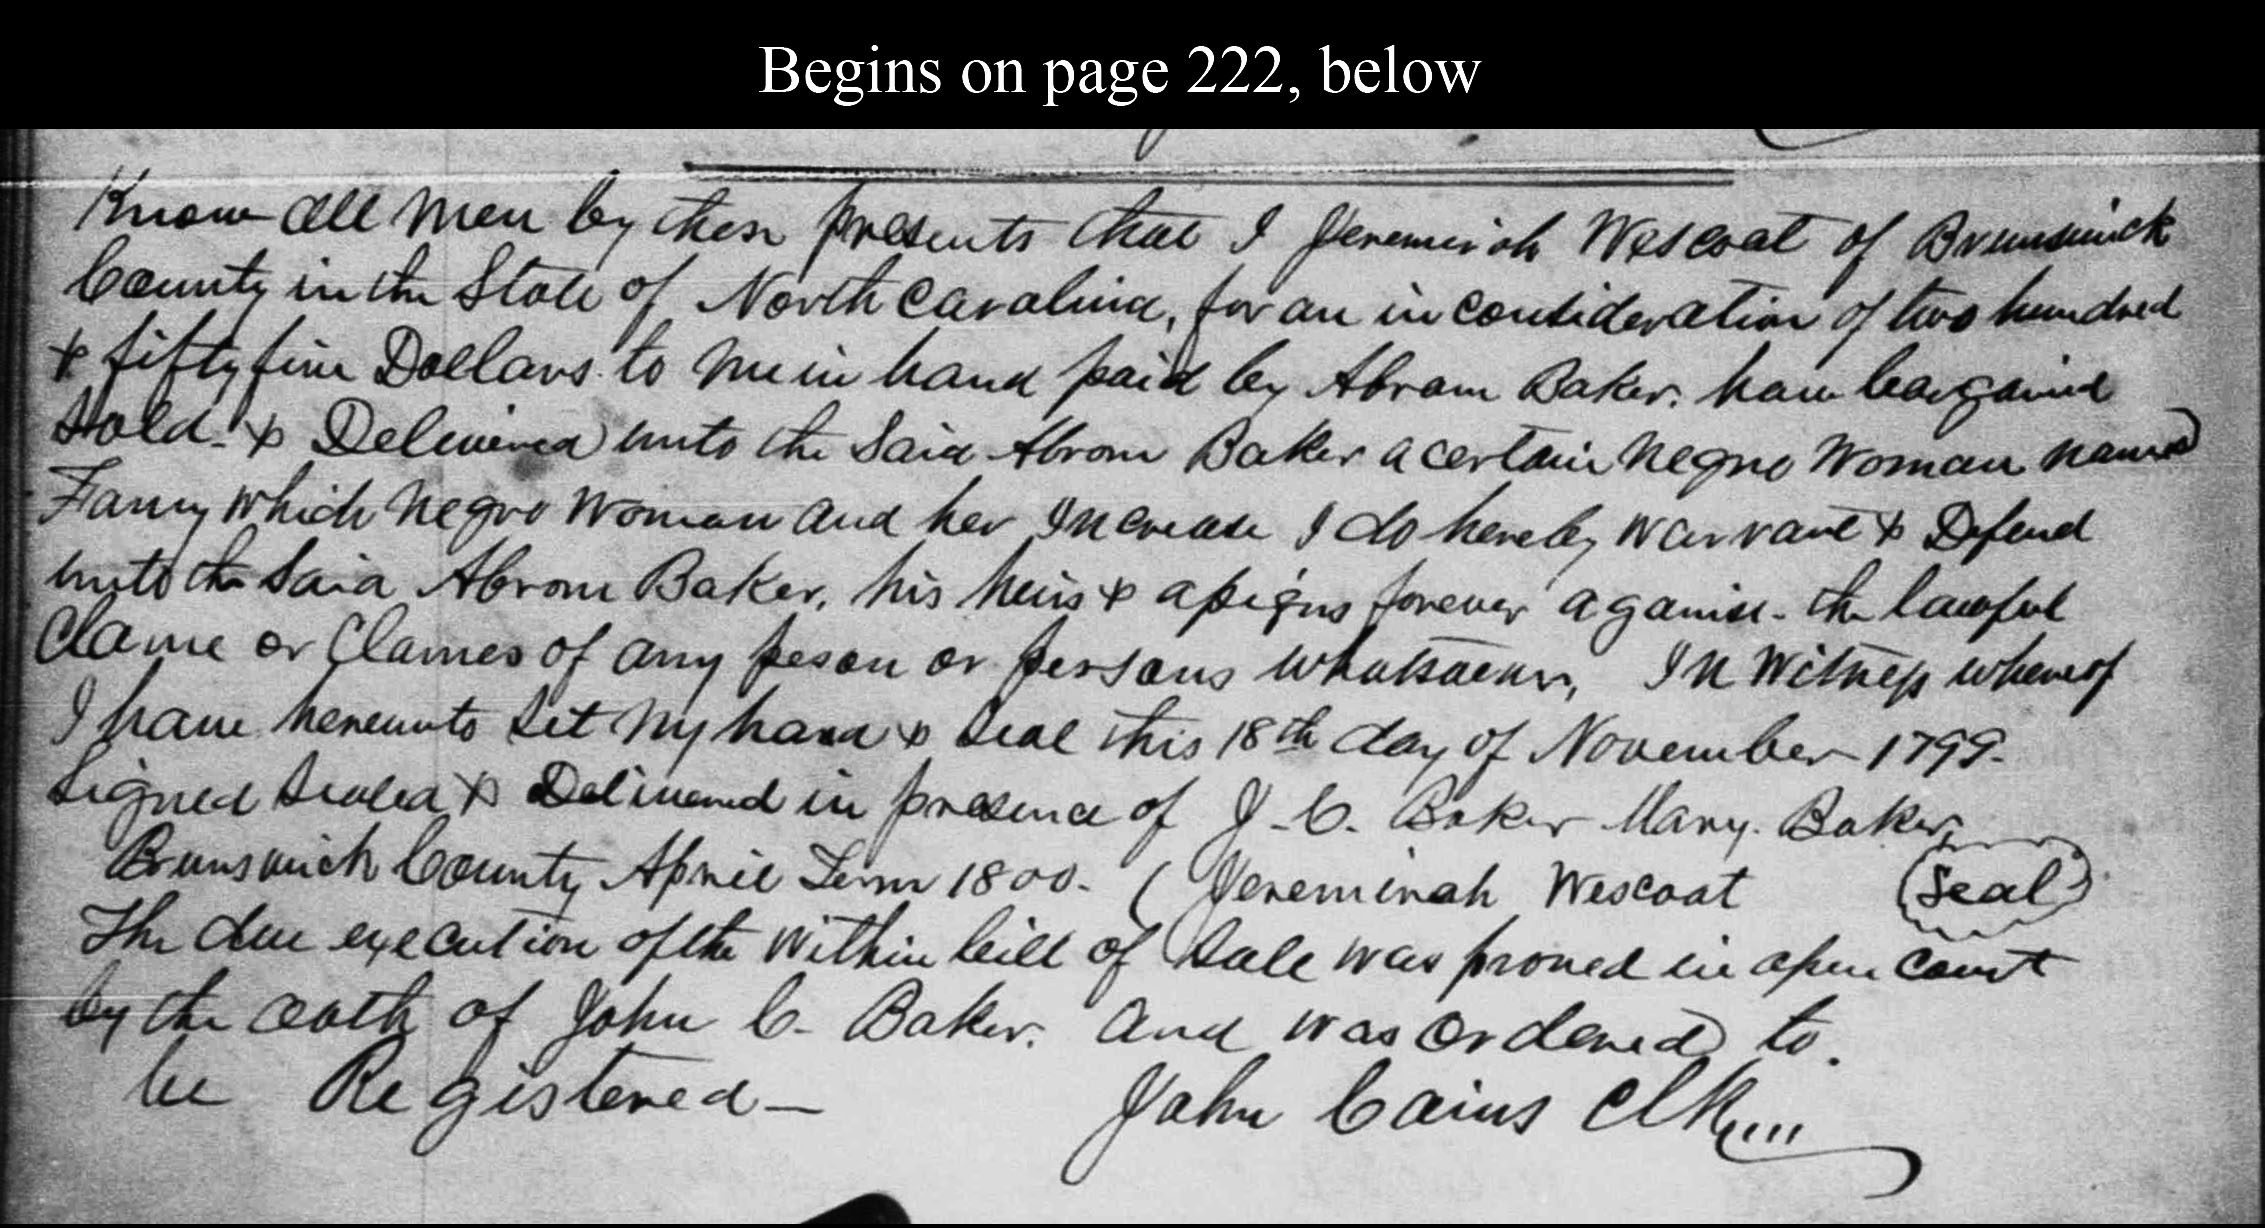 Begins on page 222, below
Know all Men by these presents that I Jeremirah Wescoat of Brunswick
County in the State of North Carolina, for an in consideration of two hundred
& fifty five Dollars to me in hand paid by Abram Baker. have bargained
Sold. & Delivered unto the Said Abrom Baker a certain Negro Woman named
Fanny which Negro Woman and her Increase I do hereby Warrant & Defend
unto the Said Abrom Baker, his heirs & assigns forever against the lawful
Clame or Clames of any peson or persons whatsoever, In Witness whereof
I have hereunto Set My hand & Seal this 18th day of November 1799.
Signed Sealed & Delivered in presence of J. C. Baker Mary. Baker
Brunswick County April Term 1800. ( Jeremirah Wescoat Seal
The due execution of the within bill of Sale was proved in open Court
by the oath of John C. Baker. and was ordered to.
be Registered—
John Cains Clk